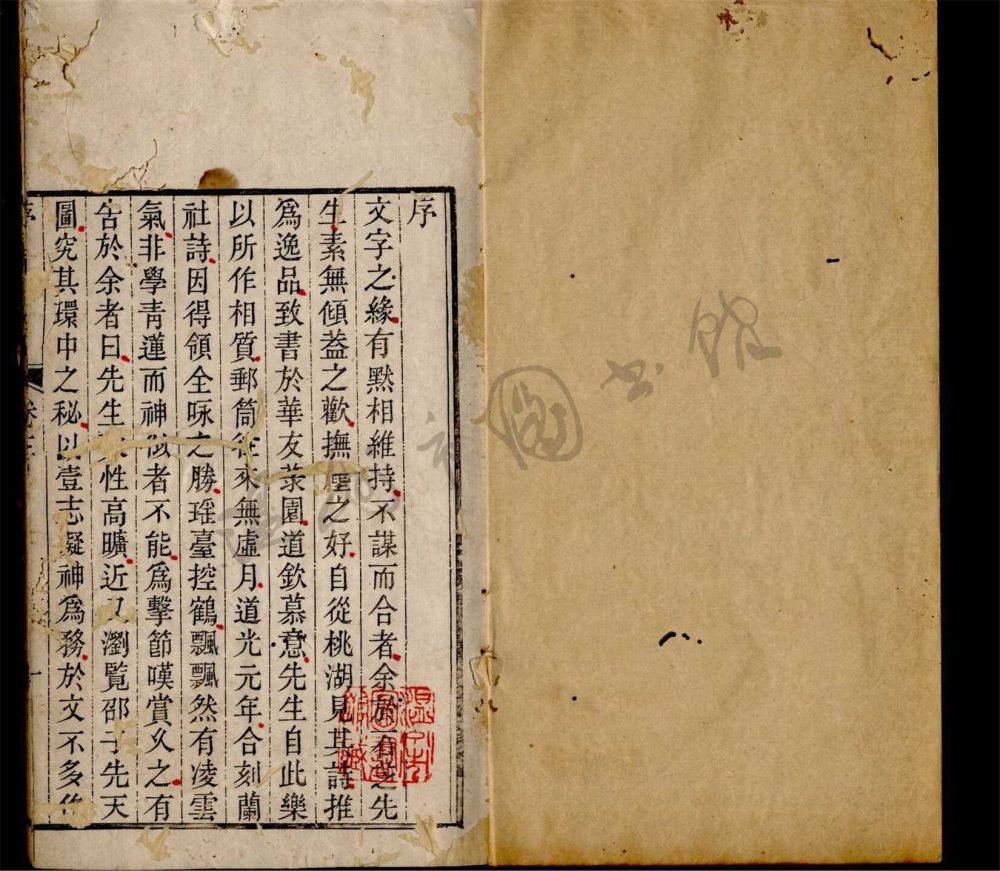 序
文字之緣有默相維持不謀而合者余於有芝先
生素無傾葢之歡撫塵之好自從桃湖見其詩推
爲逸品致書於華友菉園道欽慕意先生自此樂
以所作相質郵筒往來無虛月道光元年合刻蘭
社詩因得領全咏之勝瑶臺控鶴飄飄然有凌雲
氣非學青蓮而神似者不能爲擊節嘆賞久之有
告於余者曰先生性高曠近又瀏覧邵子先天
圖究其環中之秘以壹志凝神爲務於文不多作
序
圖書館